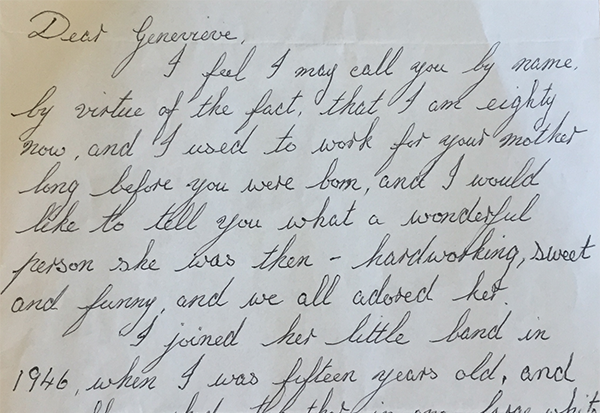 Dear Genevieve,
I feel I may call you by name,
by virtue of the fact, that I am eighty
now, and I used to work for your mother
long before you were born, and I would
like to tell you what a wonderful
person she was then – hardworking, sweet
and funny, and we all adored her.
I joined her little band in
1946, when I was fifteen years old, and